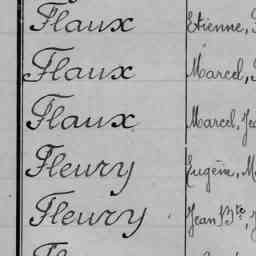 Flaux Etienne,
Flaux Marcel,
Flaux Marcel,
Fleury Eugène,
Fleury Jean Bte,